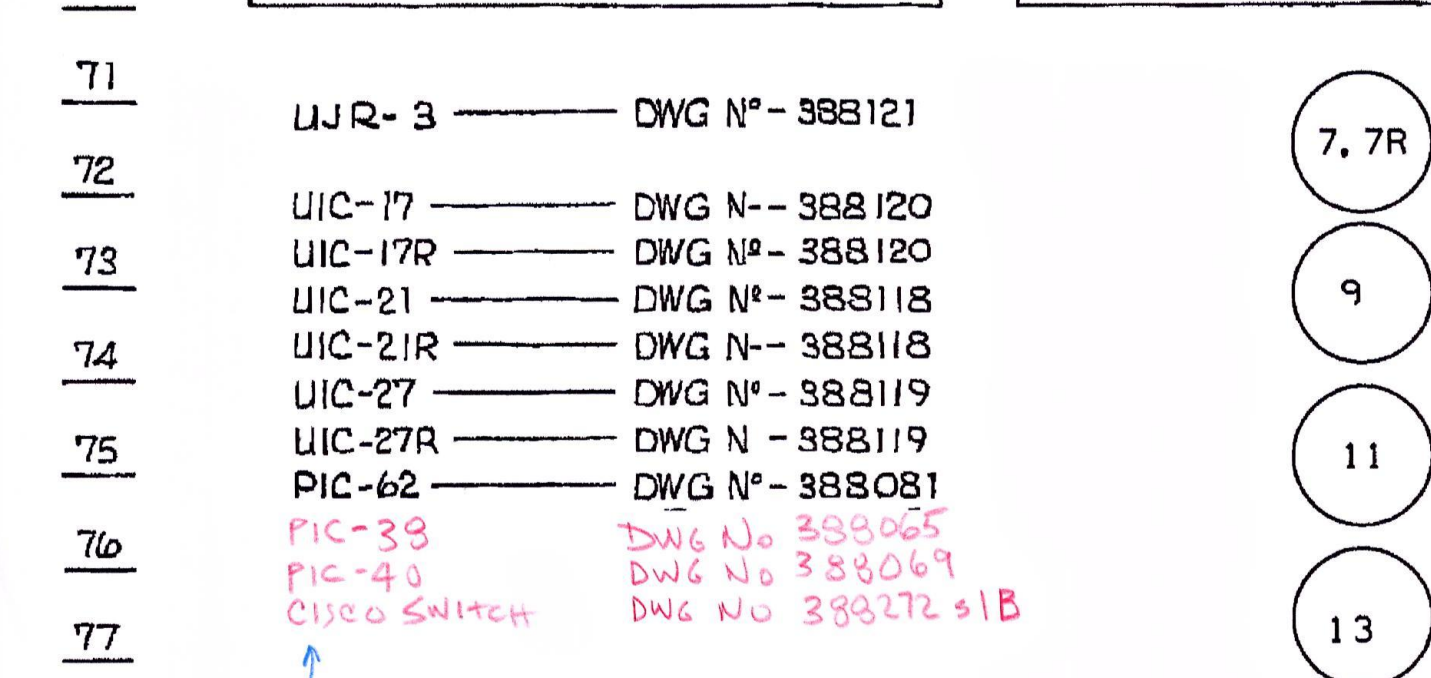 71
UJR-3 DWG Nº-388121
7, 7R
72
UIC-17 DWG N--388120
73
UIC-17R DWG Nº-388120
9
UIC-21 DWG Nº-388118
74
UIC-21R DWG N--388118
UIC-27 DWG Nº-388119
75
UIC-27R DWG N -388119
11
PIC-62 DWG Nº-388081
76
PIC-38 DWG No 388065
PIC-40 DWG No 388069
CISCO SWITCH DWG NO 388272 S1B
77
13